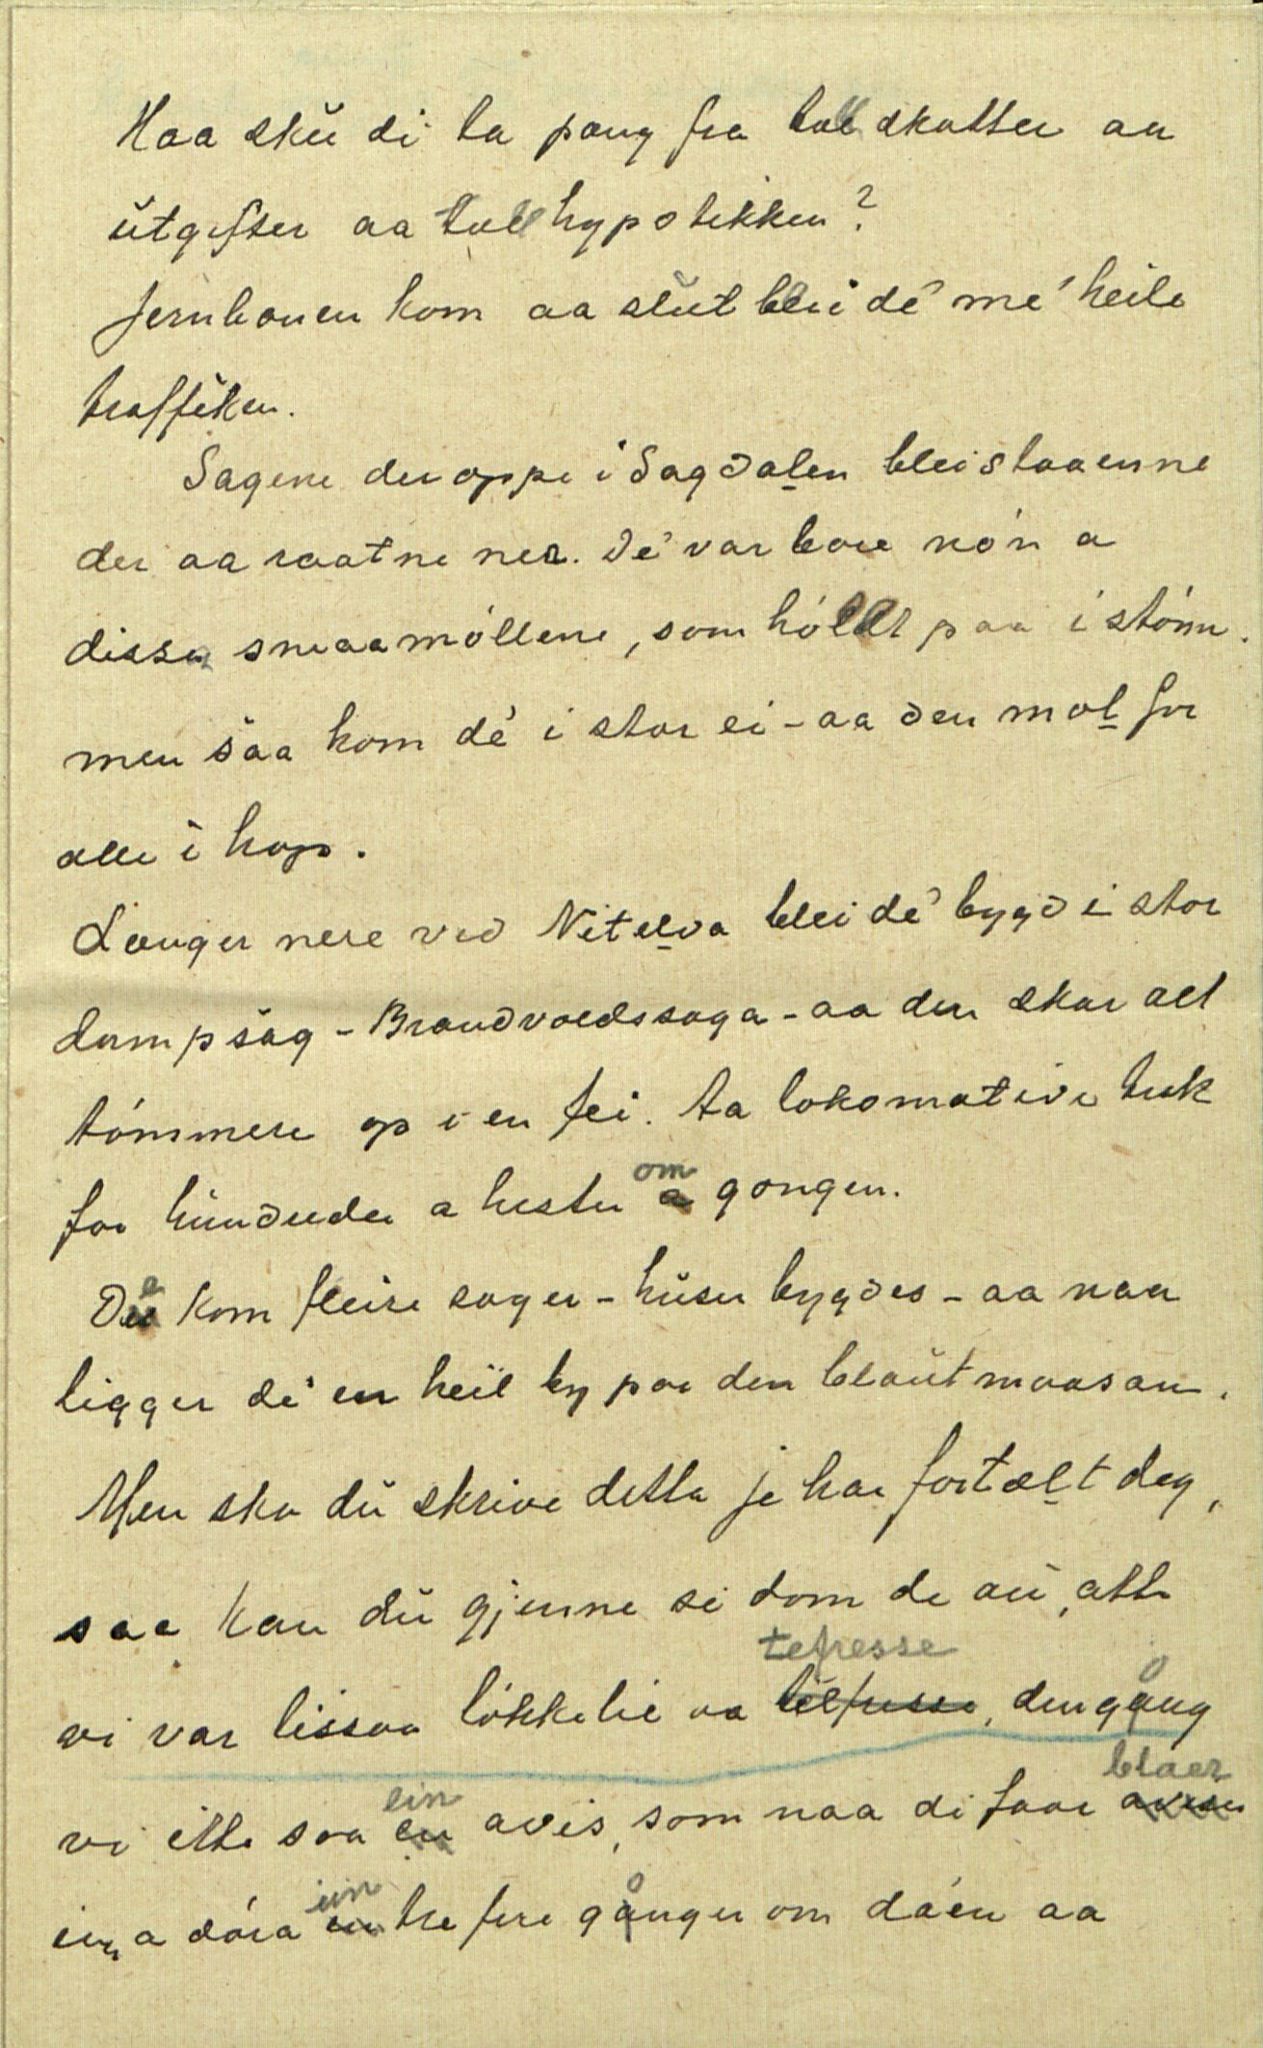 Haa skŭ di ta pæng fra tell skatter aa
ŭtgifter aa tell hypotekken?
Jernbanen kom aa slŭt blei dé mé heile
traffikken.
Sagene der oppe i Sagdalen blei staaenne
der aa raatne ner. Dé var bare nón a
dissa smaamóllene, som hóllt paa i stónn.
men saa kom dé i stor ei - aa den mol for
alle ihop.
Længer nere ved Nitelva blei dé bygd i stor
dampsag - Brandvoldssaga - aa den skar alt
tómmere op i en fei. Aa lokomotive trak
for hŭndreder a hester om gongen.
De kom fleire sager - hŭser bygdes - aa naa
ligger dé en heil by paa den blaŭtmaasan.
Men ska dŭ skrive detta je har fortælt deg,
saa kan dŭ gjenne si dom de aŭ, atte
vi var lissaa lókkelie aa tefresse, dengång
vi itte saa ein avis, som naa di faar blaer
inn a dóra ein tre fire gånger om dáen aa